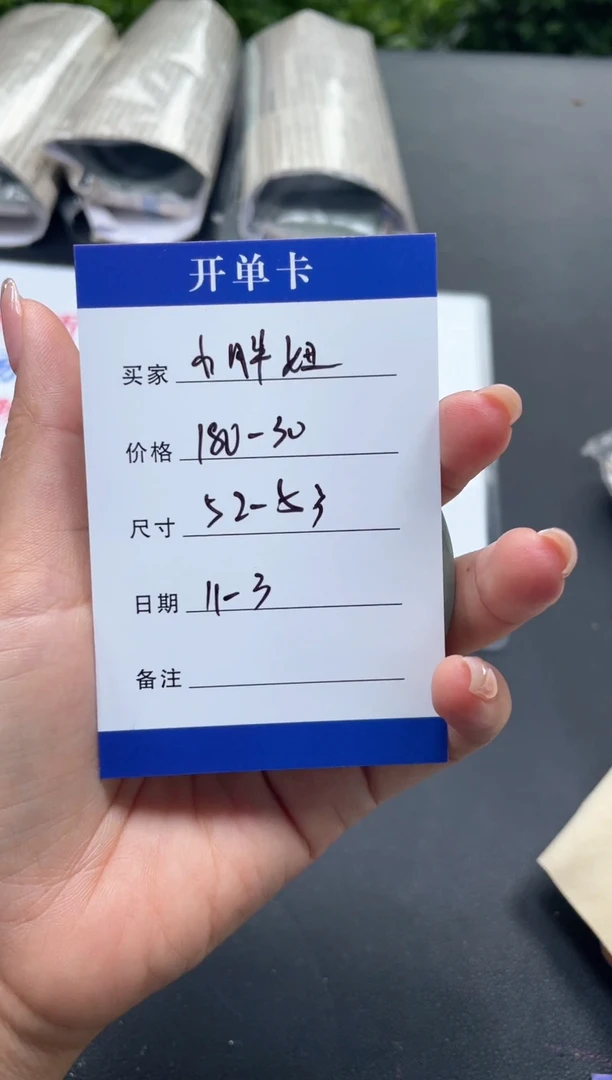 开单卡
买家 小胖妞
价格 180-30
尺寸 52-53
日期 11-3
备注